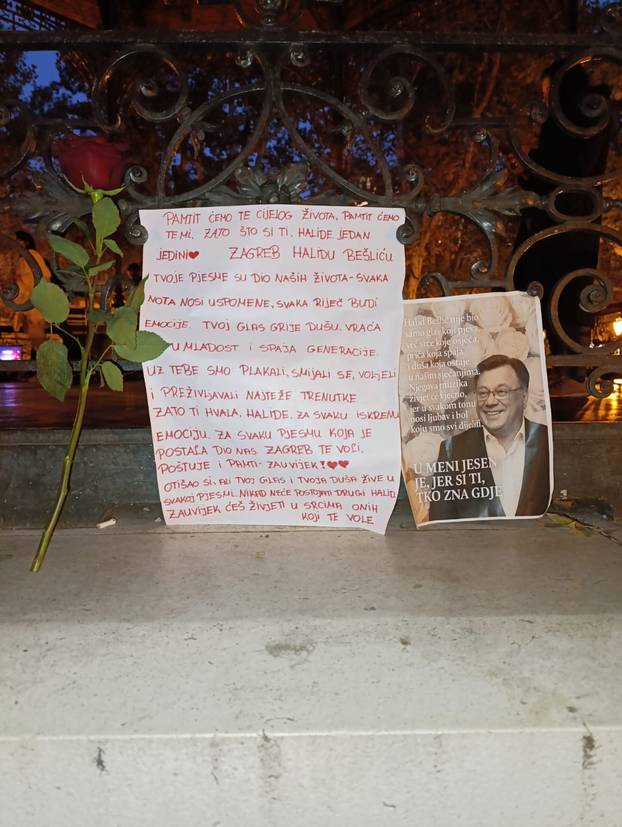 PAMTIT ĆEMO TE CIJELOG ŽIVOTA, PAMTIT ĆEMO
TE MI, ZATO ŠTO SI TI, HALIDE JEDAN
JEDINI♥ ZAGREB HALIDU BEŠLIĆU
TVOJE PJESME SU DIO NAŠIH ŽIVOTA-SVAKA
NOTA NOSI USPOMENE, SVAKA RIJEČ BUDI
EMOCIJE. TVOJ GLAS GRIJE DUŠU, VRAĆA
U MLADOST I SPAJA GENERACIJE.
UZ TEBE SMO PLAKALI, SMIJALI SE, VOLJELI
I PREŽIVLJAVALI NAJTEŽE TRENUTKE
ZATO TI HVALA, HALIDE, ZA SVAKU ISKRENU
EMOCIJU, ZA SVAKU PJESMU KOJA JE
POSTALA DIO NAS. ZAGREB TE VOLI,
POŠTUJE I PAMTI-ZAUVIJEK!♥♥
OTIŠAO SI, ALI TVOJ GLAS I TVOJA DUŠA ŽIVE U
SVAKOJ PJESMI. NIKAD NEĆE POSTOJATI DRUGI HALID,
ZAUVIJEK ĆEŠ ŽIVJETI U SRCIMA ONIH
KOJI TE VOLE
Halid Bešlić nije bio
samo glas koji pjeva
već srce koje osjeća,
priča koja spaja
i duša koja ostaje
u našim sjećanjima.
Njegova muzika
živjet će vječno,
jer u svakom tonu
nosi ljubav i bol
koju smo svi dijelili.
U MENI JESEN
JE, JER SI TI,
TKO ZNA GDJE